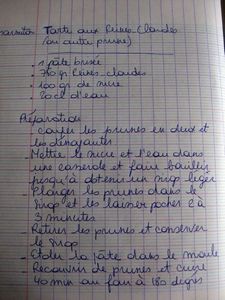 Tarte aux Reines-Claudes
(ou autre prunes)
- 1 pâte brisée
- 750 gr Reines-claudes
- 100 gr de sucre
- 20 cl d'eau
Préparation
- Couper les prunes en deux et
les dénoyauter
- Mettre le sucre et l'eau dans
une casserole et faire bouillir
jusqu'à obtenir un sirop léger
- Plonger les prunes dans le
sirop et les laisser pocher 2 à
3 minutes
- Retirer les prunes et conserver
le sirop
- Etaler la pâte dans le moule
- Recouvrir de prunes et cuire
40 min au four à 180 degrés